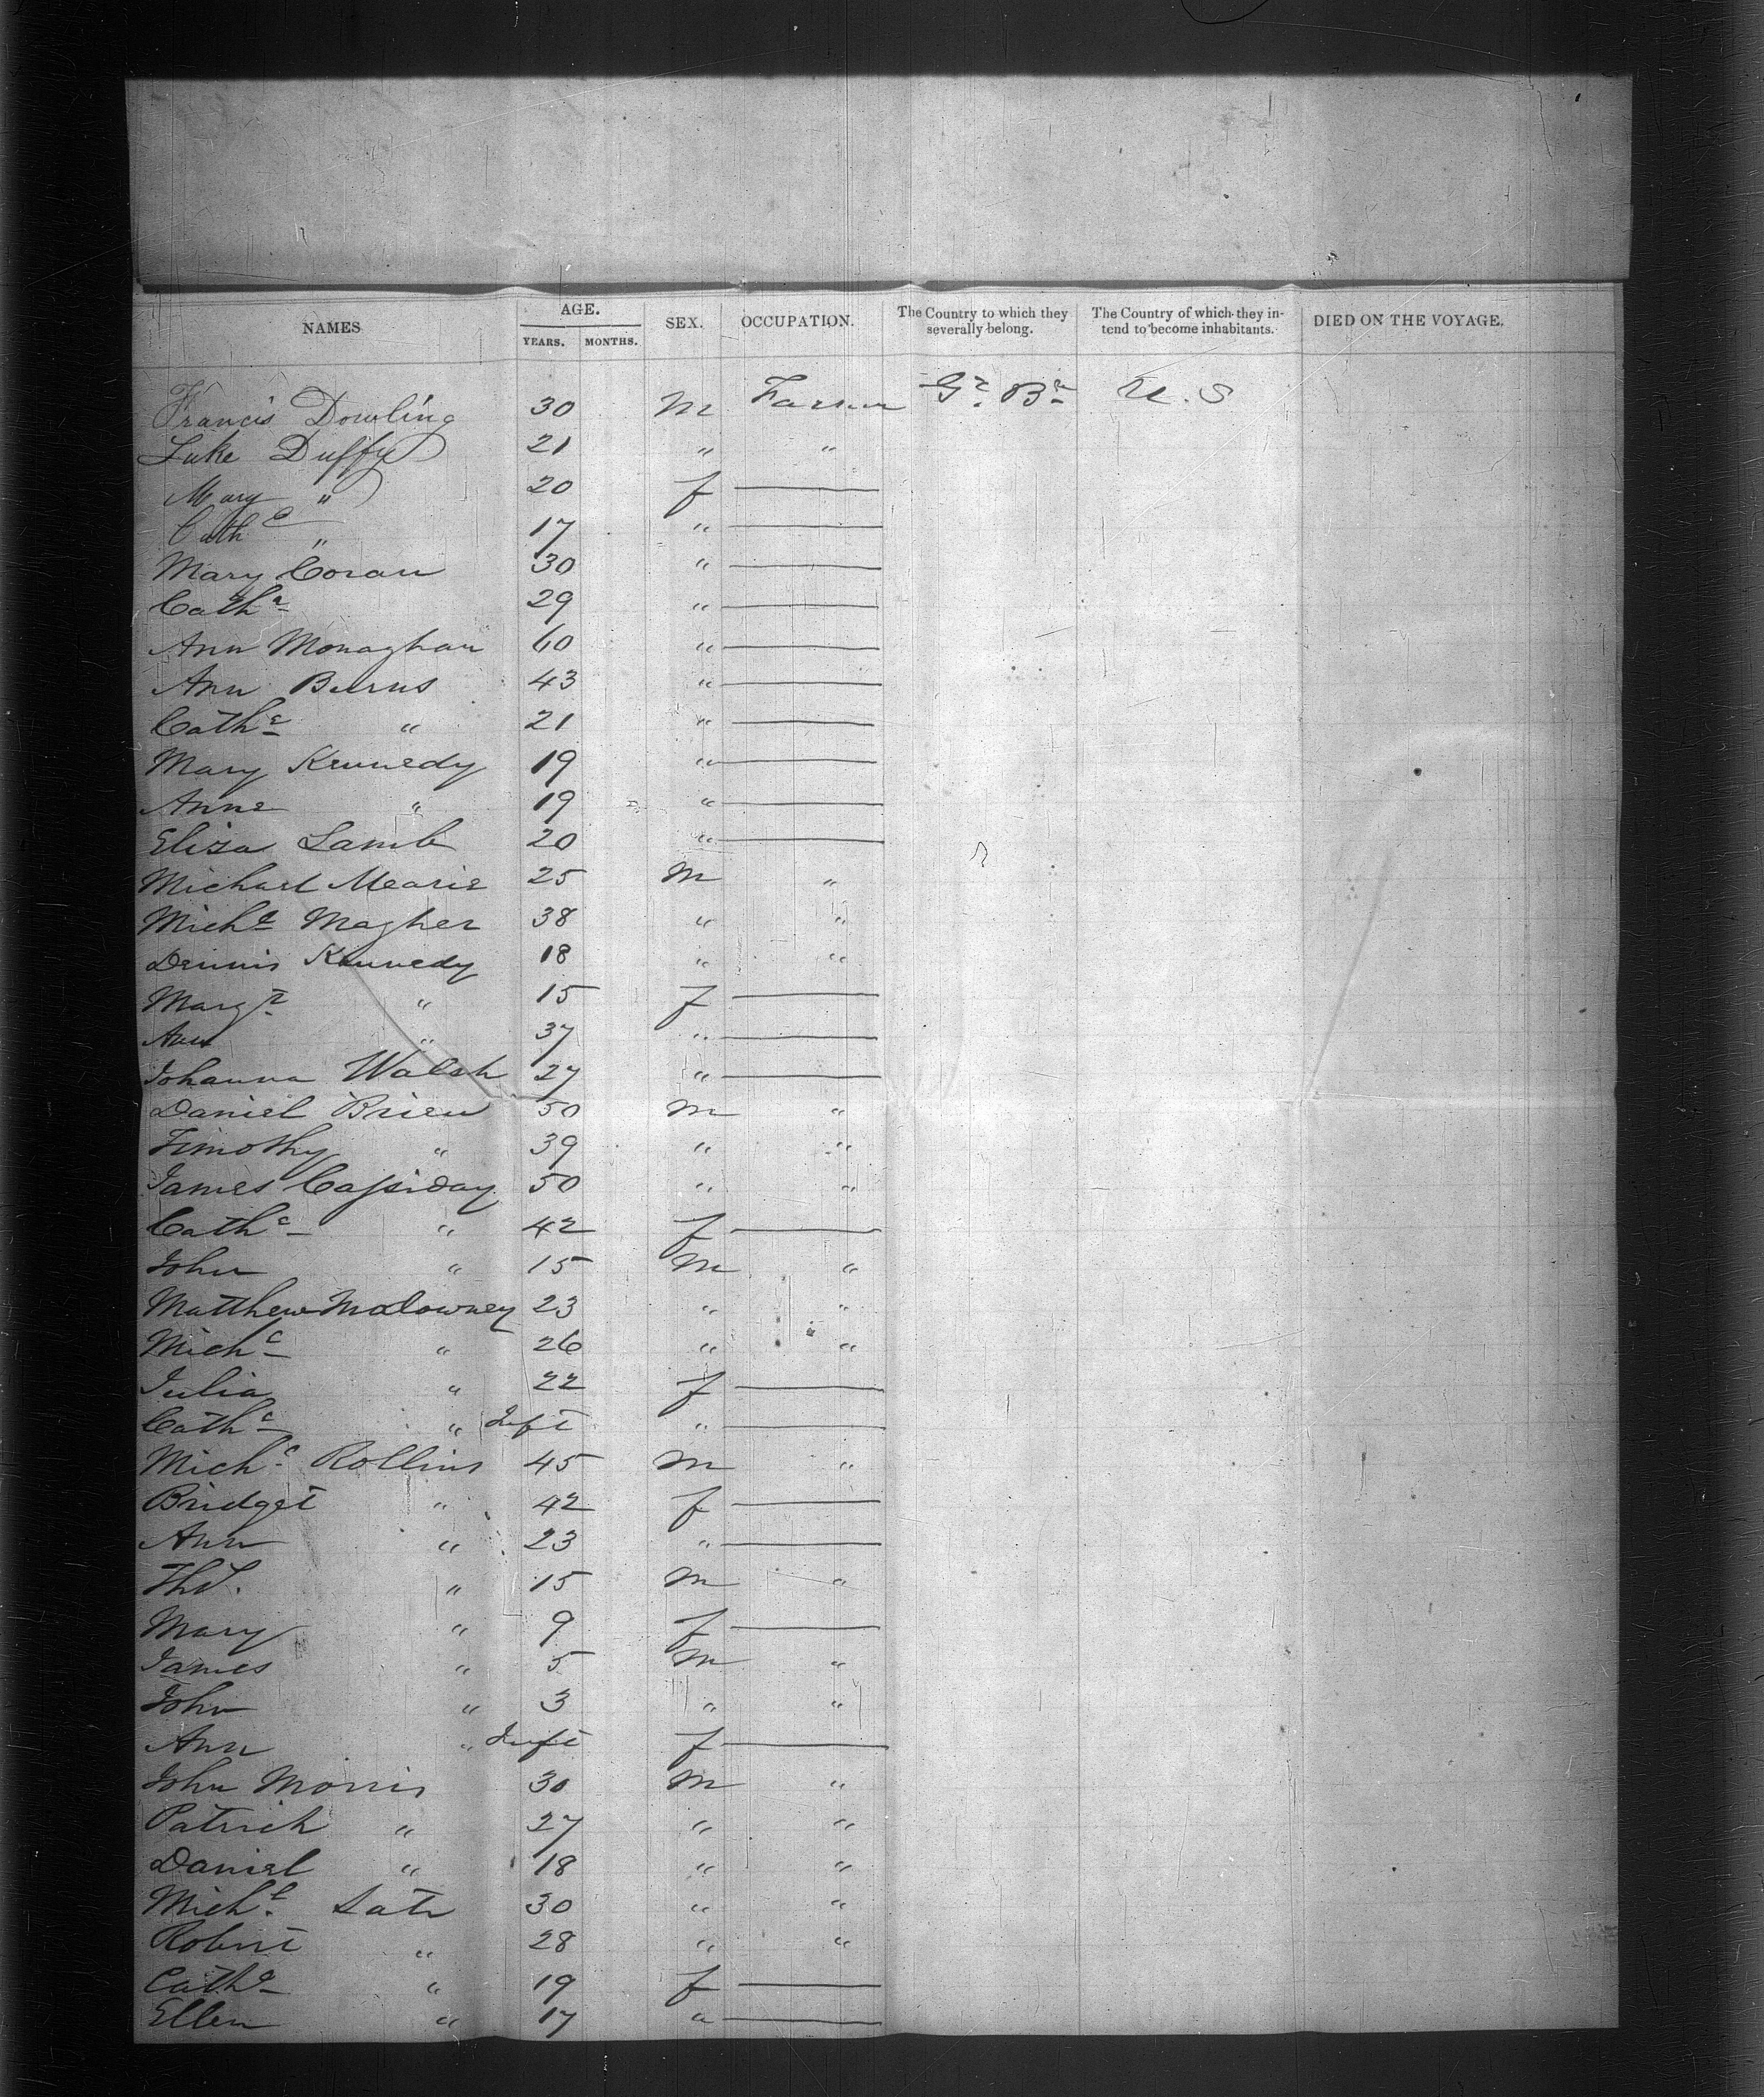 NAMES AGE. YEARS. MONTHS. SEX. OCCUPATION. The Country to which they severally belong. The Country of which they intend to become inhabitants. DIED ON THE VOYAGE.
Francis Dowling 30 M Farmer Gt. Bn U.S
Luke Duffy 21 " "
Mary " 20 f
Cathe " 17 "
Mary Coran 30 "
Cathe 29 "
Ann Monaghan 60 "
Ann Burns 43 "
Cathe " 21 "
Mary Kennedy 19 "
Anne " 19 "
Eliza Lamb 20 "
Michael Mearie 25 M "
Michl Magher 38 " "
Dennis Kennedy 18 " "
Margt " 15 f
Ann " 37 "
Johanna Walsh 27 "
Daniel Brien 50 M "
Timothy " 39 " "
James Cassiday 50 " "
Cathe " 42 f
John " 15 M "
Matthew Malowney 23 " "
Michl " 26 " "
Julia " 22 f
Cathe " Inft "
Michl Rollins 45 M "
Bridget " 42 f
Ann " 23 "
Ths. " 15 M "
Mary " 9 f
James " 5 M "
John " 3 " "
Ann " Inft f
John Morris 30 M "
Patrick " 27 " "
Daniel " 18 " "
Michl 30 " "
Robert " 28 " "
Cathe " 19 f
Ellen " 17 "